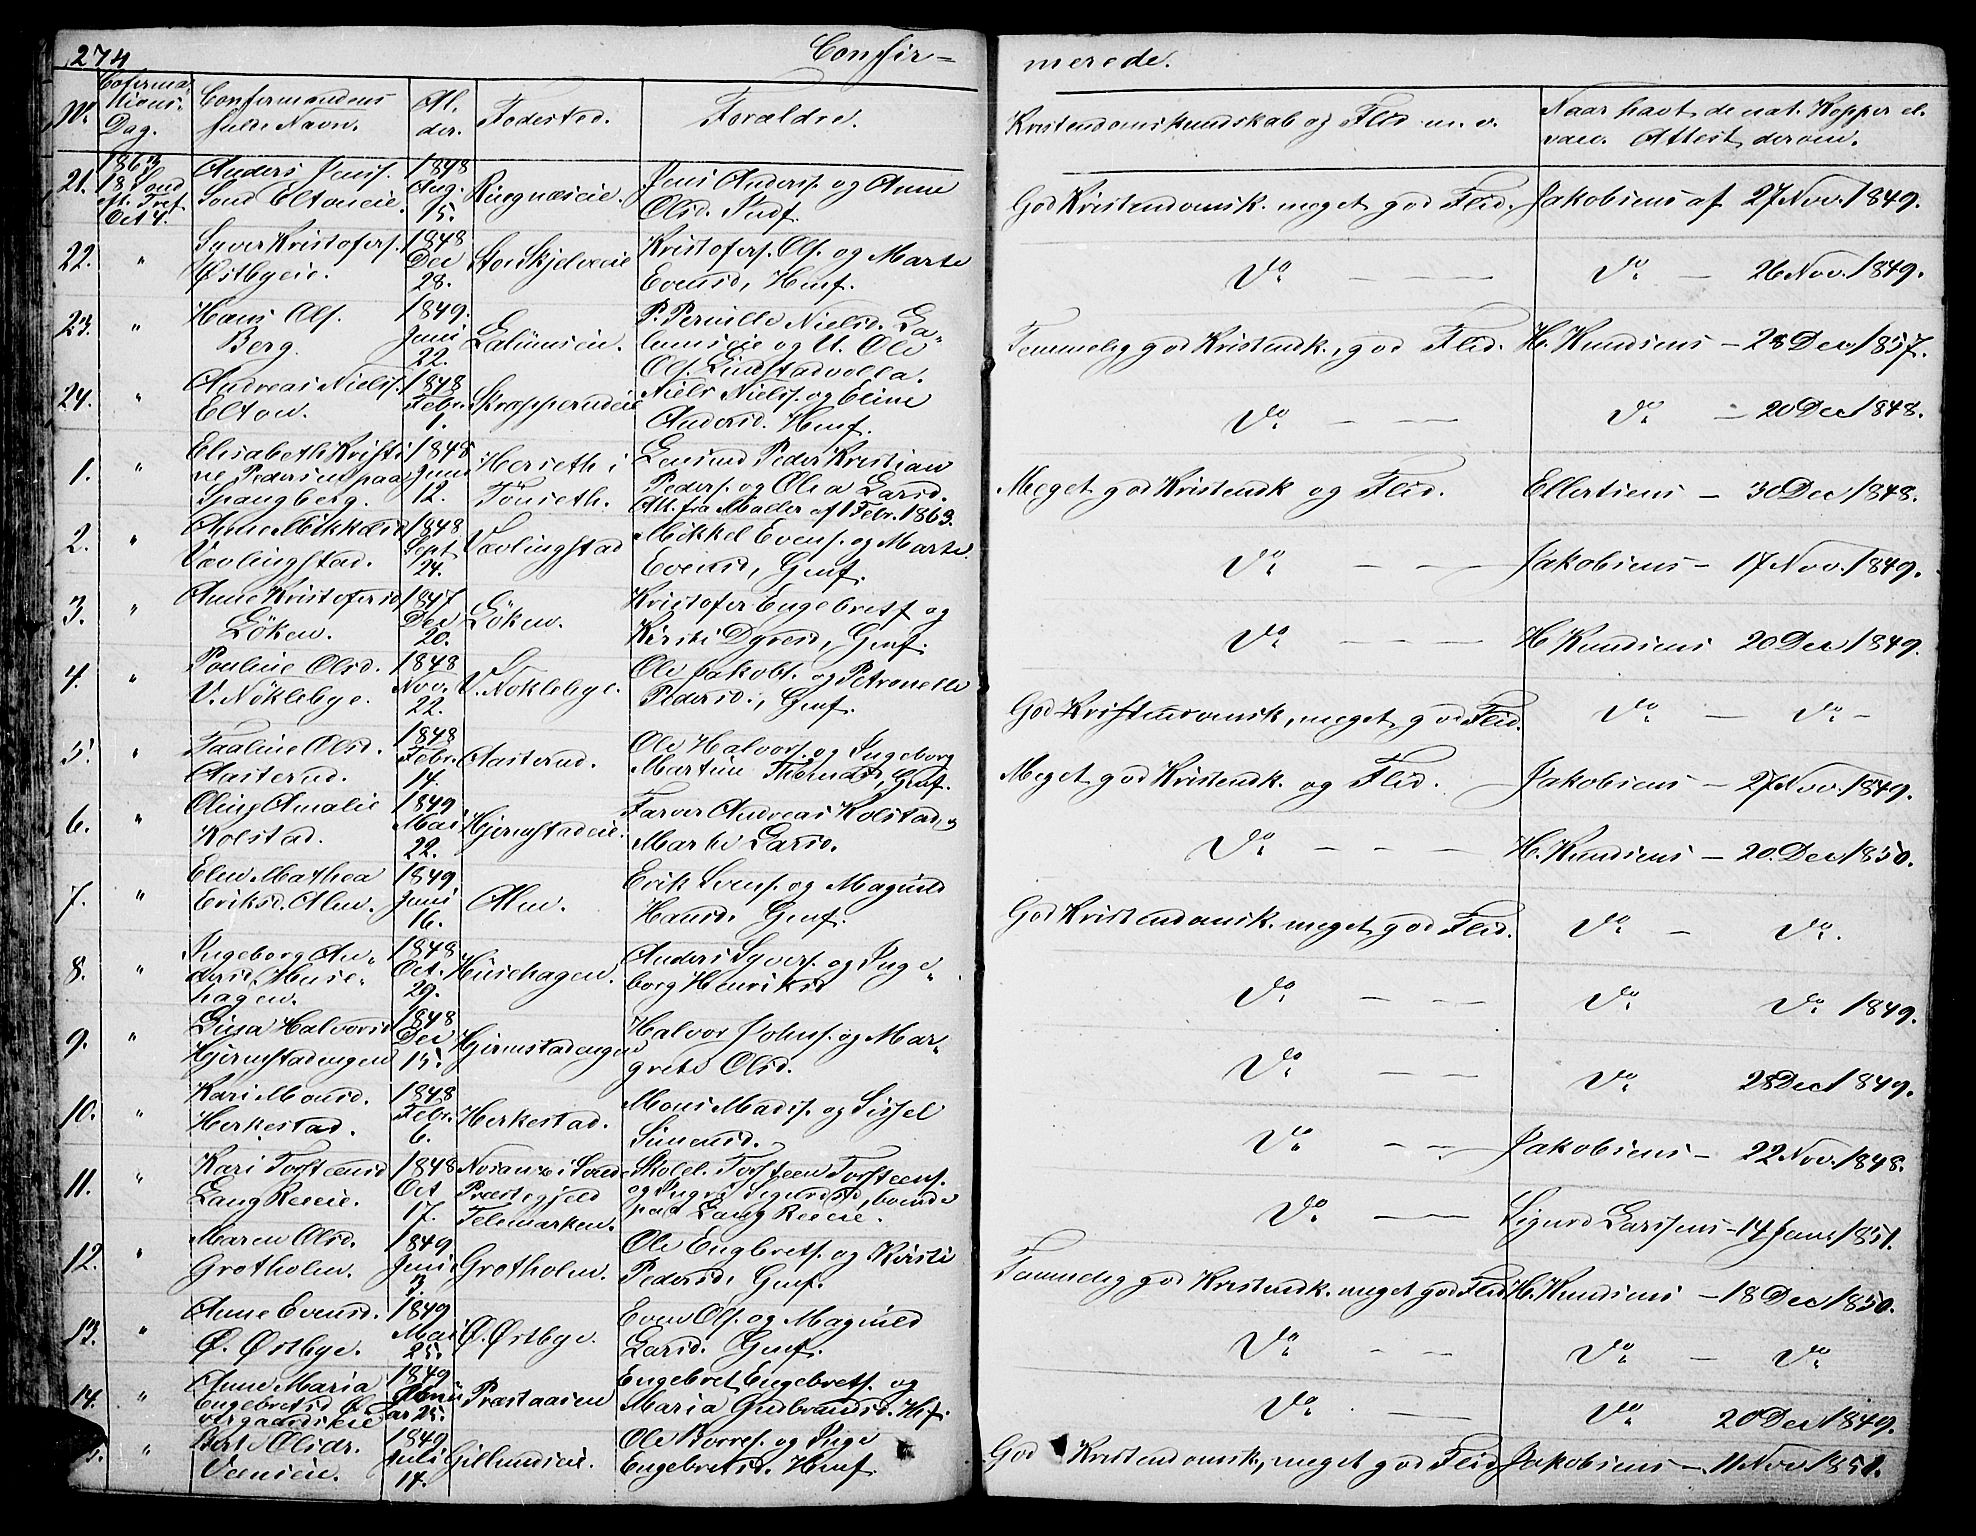 274
Confir=
merede.
No.
Coferma-
tions-
Dag.
Confermandens
fulde Navn.
Al-
der.
Fødested.
Forældre.
Kristendomskundskab og Flid m. v.
Naar havt de nat. Kopper el.
vacc. Attest derom.
21.
1863
18 Sönd
eft. Tref.
Oct 4.
Anders Jensf.
Sond Eltoneie.
1848
Aug.
15.
Ringnæseie.
Jens Andersf. og Anne
Olsd. Indf.
God Kristendomsk. meget god Flid.
Jakobsens af 27 Nov. 1849.
22.
"
Syver Kristofersf.
Østbyeie.
1848
Dec
28.
Stor Skjelveeie
Kristofersf. Olf. og Marte
Evensd, Husf.
Do — — —
Do — 26 Nov. 1849.
23.
"
Hans Olf.
Berg.
1849.
Juni
22.
Lalumseie.
P. Pernille Nielsd. La-
lumseie og U. Ole
Olf. Lindstadvolla.
Temmelig god Kristendk., god Flid.
H. Knudsens — 28 Dec. 1857.
24.
"
Andreas Nielsf.
Elton.
1848
Febr.
1.
Skrapperudeie
Niels Nielsf. og Eline
Andersd. Husf.
Do — — —
Do — 20 Dec 1848.
1.
"
Elisabeth Kristi
ne Pedersen paa
Spangberg.
1848
Juni
12.
Herseth i
Tönseth.
Lensmd Peder Kristian
Pedersf. og Olea Larsd.
Att. fra Moder af 1 Febr. 1863.
Meget god Kristendk og Flid.
Ellertsens — 30 Dec 1848.
2.
"
Anne Mikkelsd
Vævlingstad.
1848
Sept
24.
Vævlingstad
Mikkel Evensf. og Marte
Evensd, Gmf.
Do — — —
Jakobsens — 17 Nov. 1849.
3.
"
Anne Kristofersd
Löken.
1847
Dec
20.
Löken.
Kristofer Engebretsf og
Kirsti Dyresd, Gmf.
Do — — —
H Knudsens 20 Dec 1849.
4.
"
Pouline Olsd.
V. Nöklebye.
1848
Nov.
22.
V. Nöklebye.
Ole Jakobf. og Petronelle
Pedersd., Gmf.
God Kristendomsk, meget god Flid.
Do — Do —
5.
"
Paaline Olsd.
Aasterud.
1848
Febr.
14.
Aasterud.
Ole Halvorsf. og Ingeborg
Martine Thomasd, Gmf.
Meget god Kristendk. og Flid.
Jakobsens — 27 Nov. 1849.
6.
"
Oline Amalie
Kolstad.
1849
Mai
22.
Hjemstadeie.
Farver Andreas Kolstad, og
Marte Larsd.
Do — — —
H. Knudsens — 20. Dec 1850.
7.
"
Elen Mathea
Eriksd. Alm.
1849
Juni
16.
Alm.
Erik Svensf. og Magnild
Hansd. Gmf.
God Kristendomsk. meget god Flid.
Do — Do.
8.
"
Ingeborg An-
dersd, Huse-
hagen.
1848
Oct.
29.
Husehagen.
Anders Syversf. og Inge-
borg Henriksd
Do — —
Do Do 1849.
9.
"
Lina Halvorsd
Hjemstadengen
1848
Dec
15.
Hjemstadengen
Halvor Johnsf. og Mar-
grete Olsd.
Do — —
Do 28 Dec 1849.
10.
"
Kari Monsd.
Herkestad.
1848
Febr.
6.
Herkestad.
Mons Madsf. og Sissel
Simensd.
Do — —
Jakobsens — 22 Nov. 1848.
11.
"
Kari Torsteensd
Lang Reseie.
1848
Oct
17.
Præstegjeld
Telemarken.
Skolel. Torsteen Torsteensf.
og Ingri Sigurdsd, boende
paa Lang Reseie.
Do — —
Sigurd Larssens — 14 Jan. 1851.
12.
"
Maren Olsd.
Grotholm.
1849
Juni
3.
Grotholm.
Ole Engbretsf. og Kirsti
Pedersd, Gmf.
Temmelig god Kristendk. meget god Flid
H. Knudsens — 18 Dec 1850.
13.
"
Anne Evensd.
Ø. Østbye.
1849
Mai
25.
Ø. Østbye.
Even Olf. og Magnild
Larsd. Gmf.
Do — —
Do — Do
14.
"
Anne Maria
Engebretsd Ø.
vergaardseie
1849
25.
Præstaasen
Engebret Engebretsf. og
Maria Gudbrandsd. Hf.
Do — —
Do 20 Dec 1849.
5.
"
Berte Olsdr.
Veenseie.
1849
Juli
14.
Gillundseie.
Ole Borresf. og Inge
Engebretsd. Husf.
God Kristendomsk, meget god Flid
Jakobsens — 11 Nov 1851.